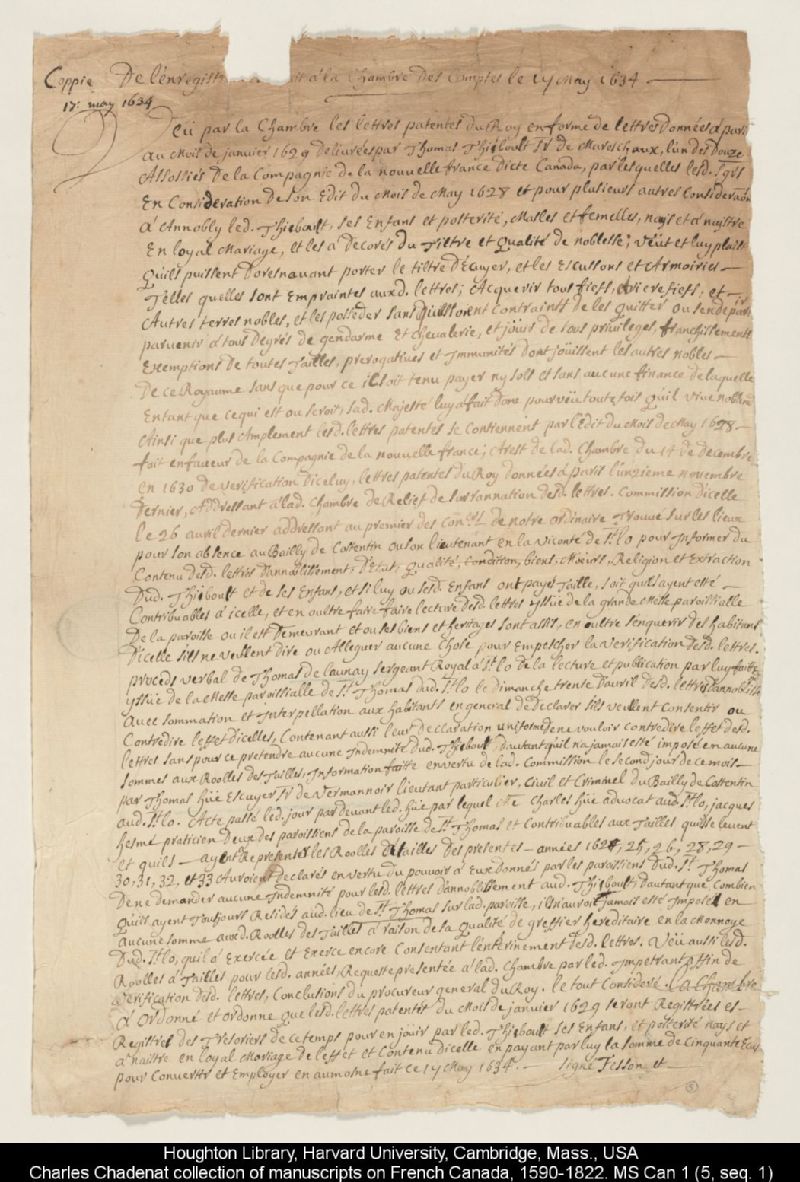 Coppie De l'enregistr it à la Chambre Des Comptes le 17 May 1634
17: may 1634
Veu par la Chambre les lettres patentes du Roy en forme de lettres Données à paris
au Mois de janvier 1629 delivrées par Thomas Thiboult Sr de Mareschaux, l'un des Douze
Associés De la Compagnie de la nouvelle france Dicte Canada, par lesquelles led. Sgrs
En Consideration de son Edit du Mois de May 1628 et pour plusieurs autres Considerāon
à Annobly led. Thiboult, ses Enfans et posterité, Masles et femelles, nays et à naistre
En loyal Mariage, et les a Decorés du Tiltre et Qualité de noblesse; veut et luy plaist
Quils puissent Doresnavant porter le tiltre d'Ecuyer, et les Escussons et Armoiries
Telles quelles sont Empraintes auxd. lettres; Acquerir tous fiefs, Arrierefiefs, et
Autres terres nobles, et les posseder sans quilz soient Contraints de les quitter ou sendepartir
parvenir à tous Degrés de gendarme Et Chevalerie, et jouir de tous privileges, franchissements
Exemptions de toutes Tailles, prerogatives et Immunités Dont jouissent les autres nobles
De ce Royaume sans que pour ce il soit tenu payer ny sols et sans aucune finance de laquelle
Entant que ce qui est ou seroit, sad. Majesté luy a fait Don pourvêu toutefois Qu'il vive noblemt
Ainsi que plus Amplement lesd. lettres patentes le Contiennent par l'Edit du Mois de May 1628
fait en faveur de la Compagnie de la nouvelle france; Arest de lad. Chambre du 14 de Decembre
en 1630 De verification D'iceluy, lettres patentes du Roy données à paris l'unzieme novembre
Dernier, Addressant à lad. Chambre de Relief de surrannation desd. lettres. Commission D'icelle
le 26 avril dernier addressant au premier des de notre ordinaire Trouvé sur les lieux
pour son absence au Bailly de Costentin ou son lieutenant en la Viconté de St. lo pour Informer du
Contenu desd. lettres d'annoblissement, D'Etat, Qualité, Condition, biens, Moeurs, Religion et Extraction
Dud. Thiboult et de ses Enfans, et si luy ou sesd. Enfans ont payé Taille, soit quils ayent esté
Contribuables à icelle, et en oultre faire faire lecture desd. lettres yssue de la grande Messe paroissialle
De la paroisse ou il est Demeurant et ou ses biens et heritages sont assis, en oultre s'enquerir des habitans
D'icelle sils ne veullent dire ou Alleguer aucune Chose pour Empescher la Verification desd. lettres.
procés verbal de Thomas de launay sergeant Royal à St. lo de la lecture et publication par luy faite
yssue de la Messe paroissialle de St. Thomas dud. St. lo le dimanche trente D'avril desd. lettres
Avec sommation et Interpellation aux habitans en general de declarer sils veullent Consentir ou
Contredire l'effet D'icelles, Contenant aussi leur Declaration uniforme de ne vouloir contredire l'effet desd.
lettres sans pour ce pretendre aucune Indemnité Dud. Thiboult dautant qu'il n'a jamais esté imposé en aucune
sommes aux Roolles des Tailles, Information faite en vertu de lad. Commission le second jour de ce mois
par Thomas hüe Escuyer Sr de Vermannoir lieutant particulier, Civil et Criminel du Bailly de Costentin
aud. St. lo. Acte passé led. jour par devant led. hüe par lequel Me. Charles hüe advocat aud. St. lo, jacques
praticien Deux des paroissiens de la paroisse de St. Thomas et Contribuables aux Tailles
et quils ayent Representé les Roolles de tailles Des presentes années 1624, 25, 26, 28, 29
30, 31, 32, et 33 Auroient declaré en vertu du pouvoir à Eux donnés par les paroissiens Dud. St. Thomas
De ne demander aucune Indemnité pour lesd. lettres d'annoblissement aud. Thiboult, Dautant que Combien
Qu'il ayent Toujours Residés aud. lieu de St. Thomas sur lad. paroisse, il n'auroit jamais esté Imposé en
Aucune somme auxd. Roolles des Tailles à raison de sa Qualité de greffier hereditaire en la Monnoye
Dud. St. lo, qu'il à Exercée et Exerce encore Consentant l'enterinement desd. lettres. Veu aussi lesd.
Roolles à Tailles pour lesd. années, Requeste presentée à lad. Chambre par led. Impetrant Affin de
Verification desd. lettres, Conclusions du procureur general du Roy. le tout Consideré. La Chambre
à Ordonné et ordonne que lesd. lettres patentes du Mois de janvier 1629 seront Registrées es
Registres des Tresoriers de ce temps pour en jouir par led. Thiboult ses Enfans, et posterité nays et
à naitre en loyal Mariage de l'effet et Contenu d'icelle en payant par luy la somme de Cinquante Ecus
pour Convertir et Employer en aumosne fait ce 17 May 1634. signé Tesson et
5
Houghton Library, Harvard University, Cambridge, Mass., USA
Charles Chadenat collection of manuscripts on French Canada, 1590-1822. MS Can 1 (5, seq. 1)